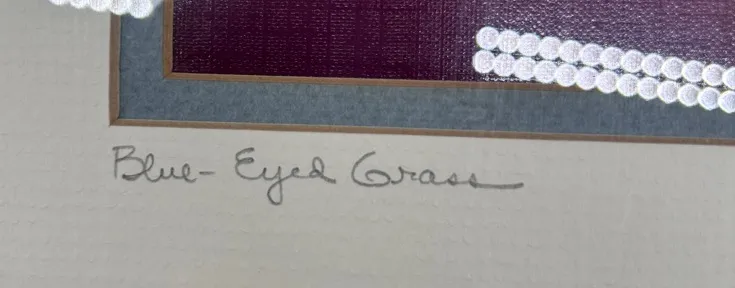 Blue-Eyed Grass